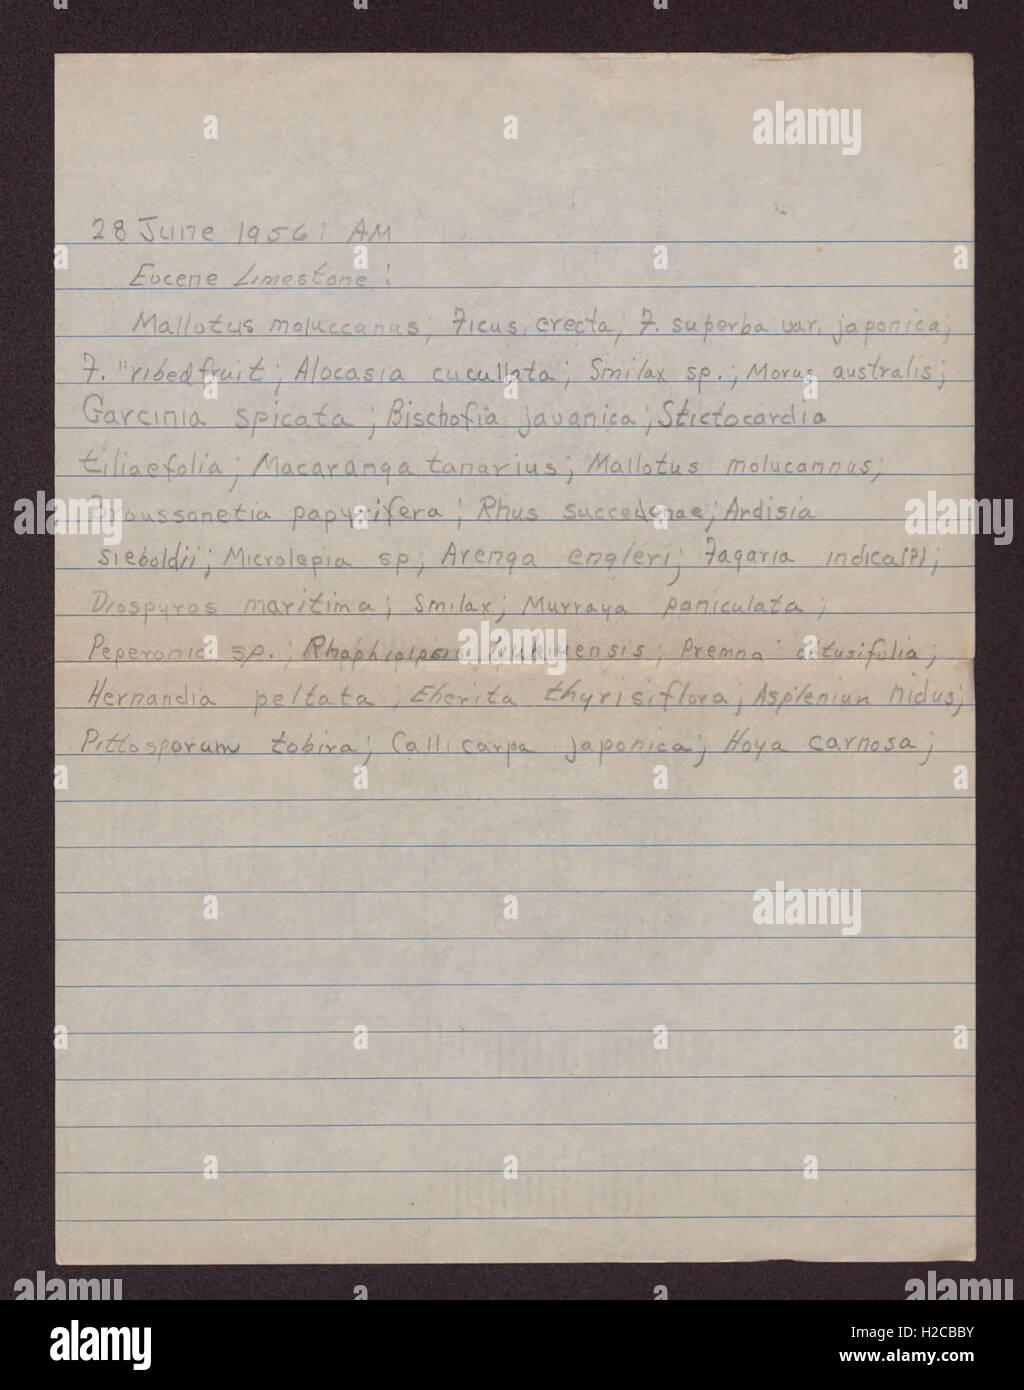 28 June 1956; AM
Eocene Limestone:
Mallotus moluccanus; Ficus erecta; F. superba var. japonica;
F. "ribed fruit; Alocasia cucullata; Smilax sp.; Morus australis;
Garcinia spicata; Bischofia javanica; Stictocardia
tiliaefolia; Macaranga tanarius; Mallotus molucannus;
Broussonetia papyrifera; Rhus succedenae; Ardisia
sieboldii; Microlepia sp; Arenga engleri; Fagaria indica(?);
Diospyros maritima; Smilax; Murraya paniculata;
Peperomia sp.; Premna obtusifolia;
Hernandia peltata; Eherita thyrisiflora; Asplenium nidus;
Pittosporum tobira; Callicarpa japonica; Hoya carnosa;
alamy
a
alamy stock photo
H2CBBY
www.alamy.com